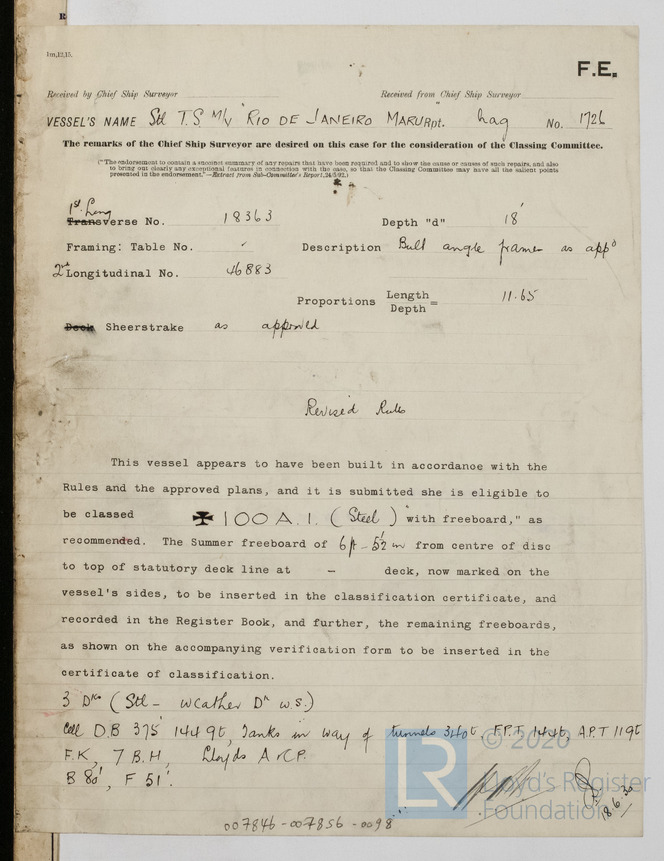 R
1m,12,15.
F.E.
Received by Chief Ship Surveyor
Received from Chief Ship Surveyor
VESSEL'S NAME Stl T.S. M/V "RIO DE JANEIRO MARU" Rpt. Nag No. 1726
The remarks of the Chief Ship Surveyor are desired on this case for the consideration of the Classing Committee.
("The endorsement to contain a succinct summary of any repairs that have been required and to show the cause or causes of such repairs, and also
to bring out clearly any exceptional features in connection with the case, so that the Classing Committee may have all the salient points
presented in the endorsement."—Extract from Sub-Committee's Report, 24/5/92.)
1st Long
Transverse No. 18363 Depth "d" 18'
Framing: Table No. Description Bulb angle frames as appd
2nd Longitudinal No. 46883
Proportions Length
Depth = 11.65
Deck Sheerstrake as approved
Revised Rules
This vessel appears to have been built in accordance with the
Rules and the approved plans, and it is submitted she is eligible to
be classed ✠ 100 A.1. (Steel) "with freeboard," as
recommended. The Summer freeboard of 6ft - 5½ in from centre of disc
to top of statutory deck line at - deck, now marked on the
vessel's sides, to be inserted in the classification certificate, and
recorded in the Register Book, and further, the remaining freeboards,
as shown on the accompanying verification form to be inserted in the
certificate of classification.
3 Dks (Stl - weather Dk w.s.)
Cell D.B 375' 1449t, Tanks in way of tunnels 340t F.P.T. 144t, A.P.T 119t
F.K, 7 B.H, Lloyds A & C.P.
B 80', F 51'.
18.6.30
007846-007856-0098
LR © 2020
Lloyd's Register
Foundation